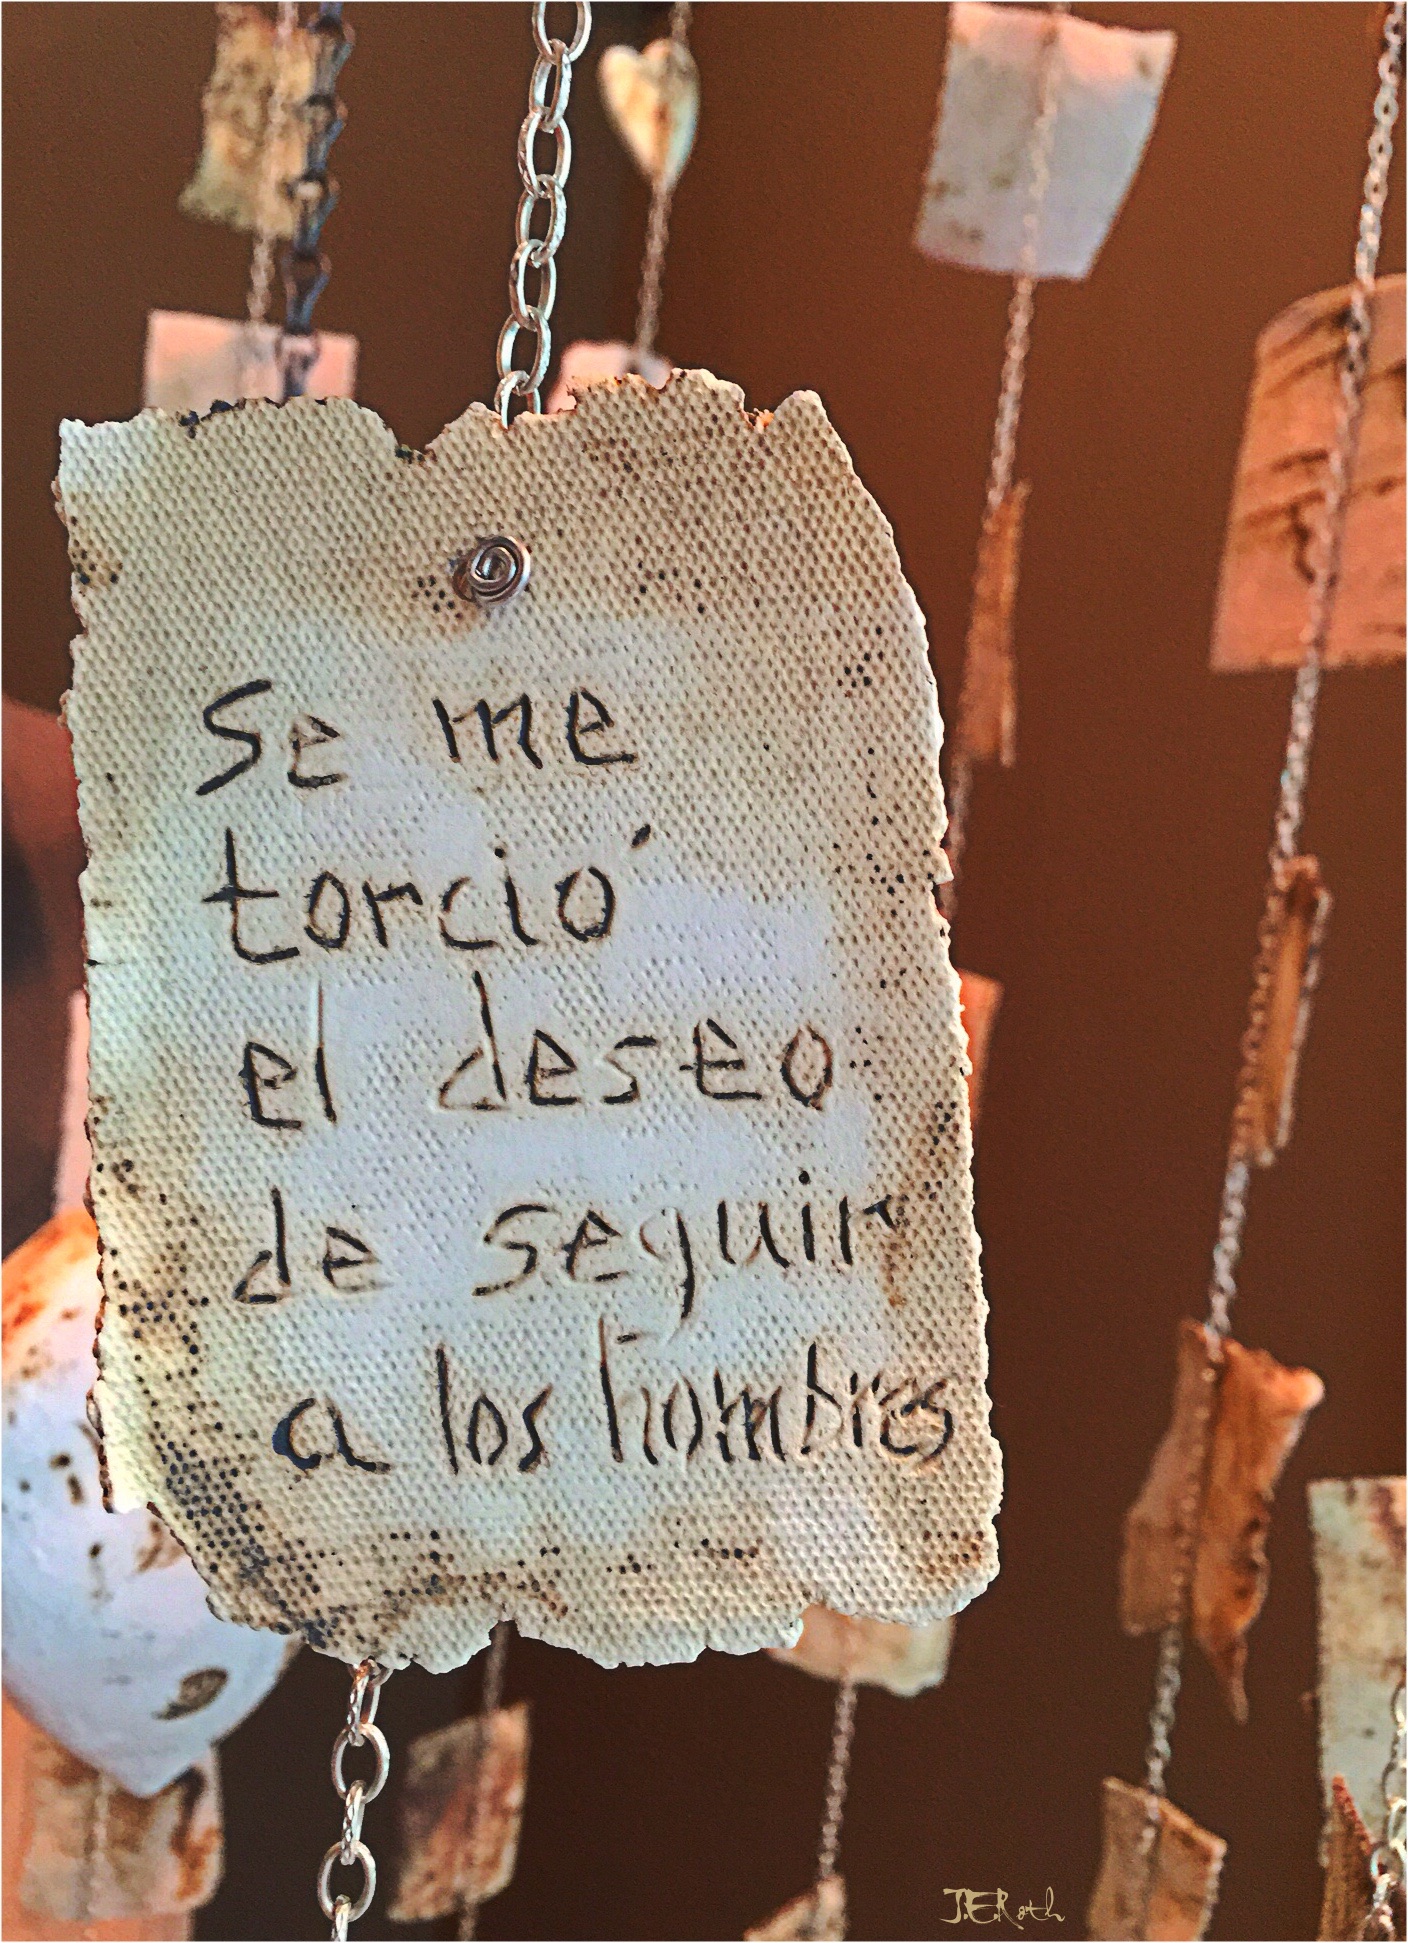 Se me
torció
el deseo
de seguir
a los hombres
J.E.Roth